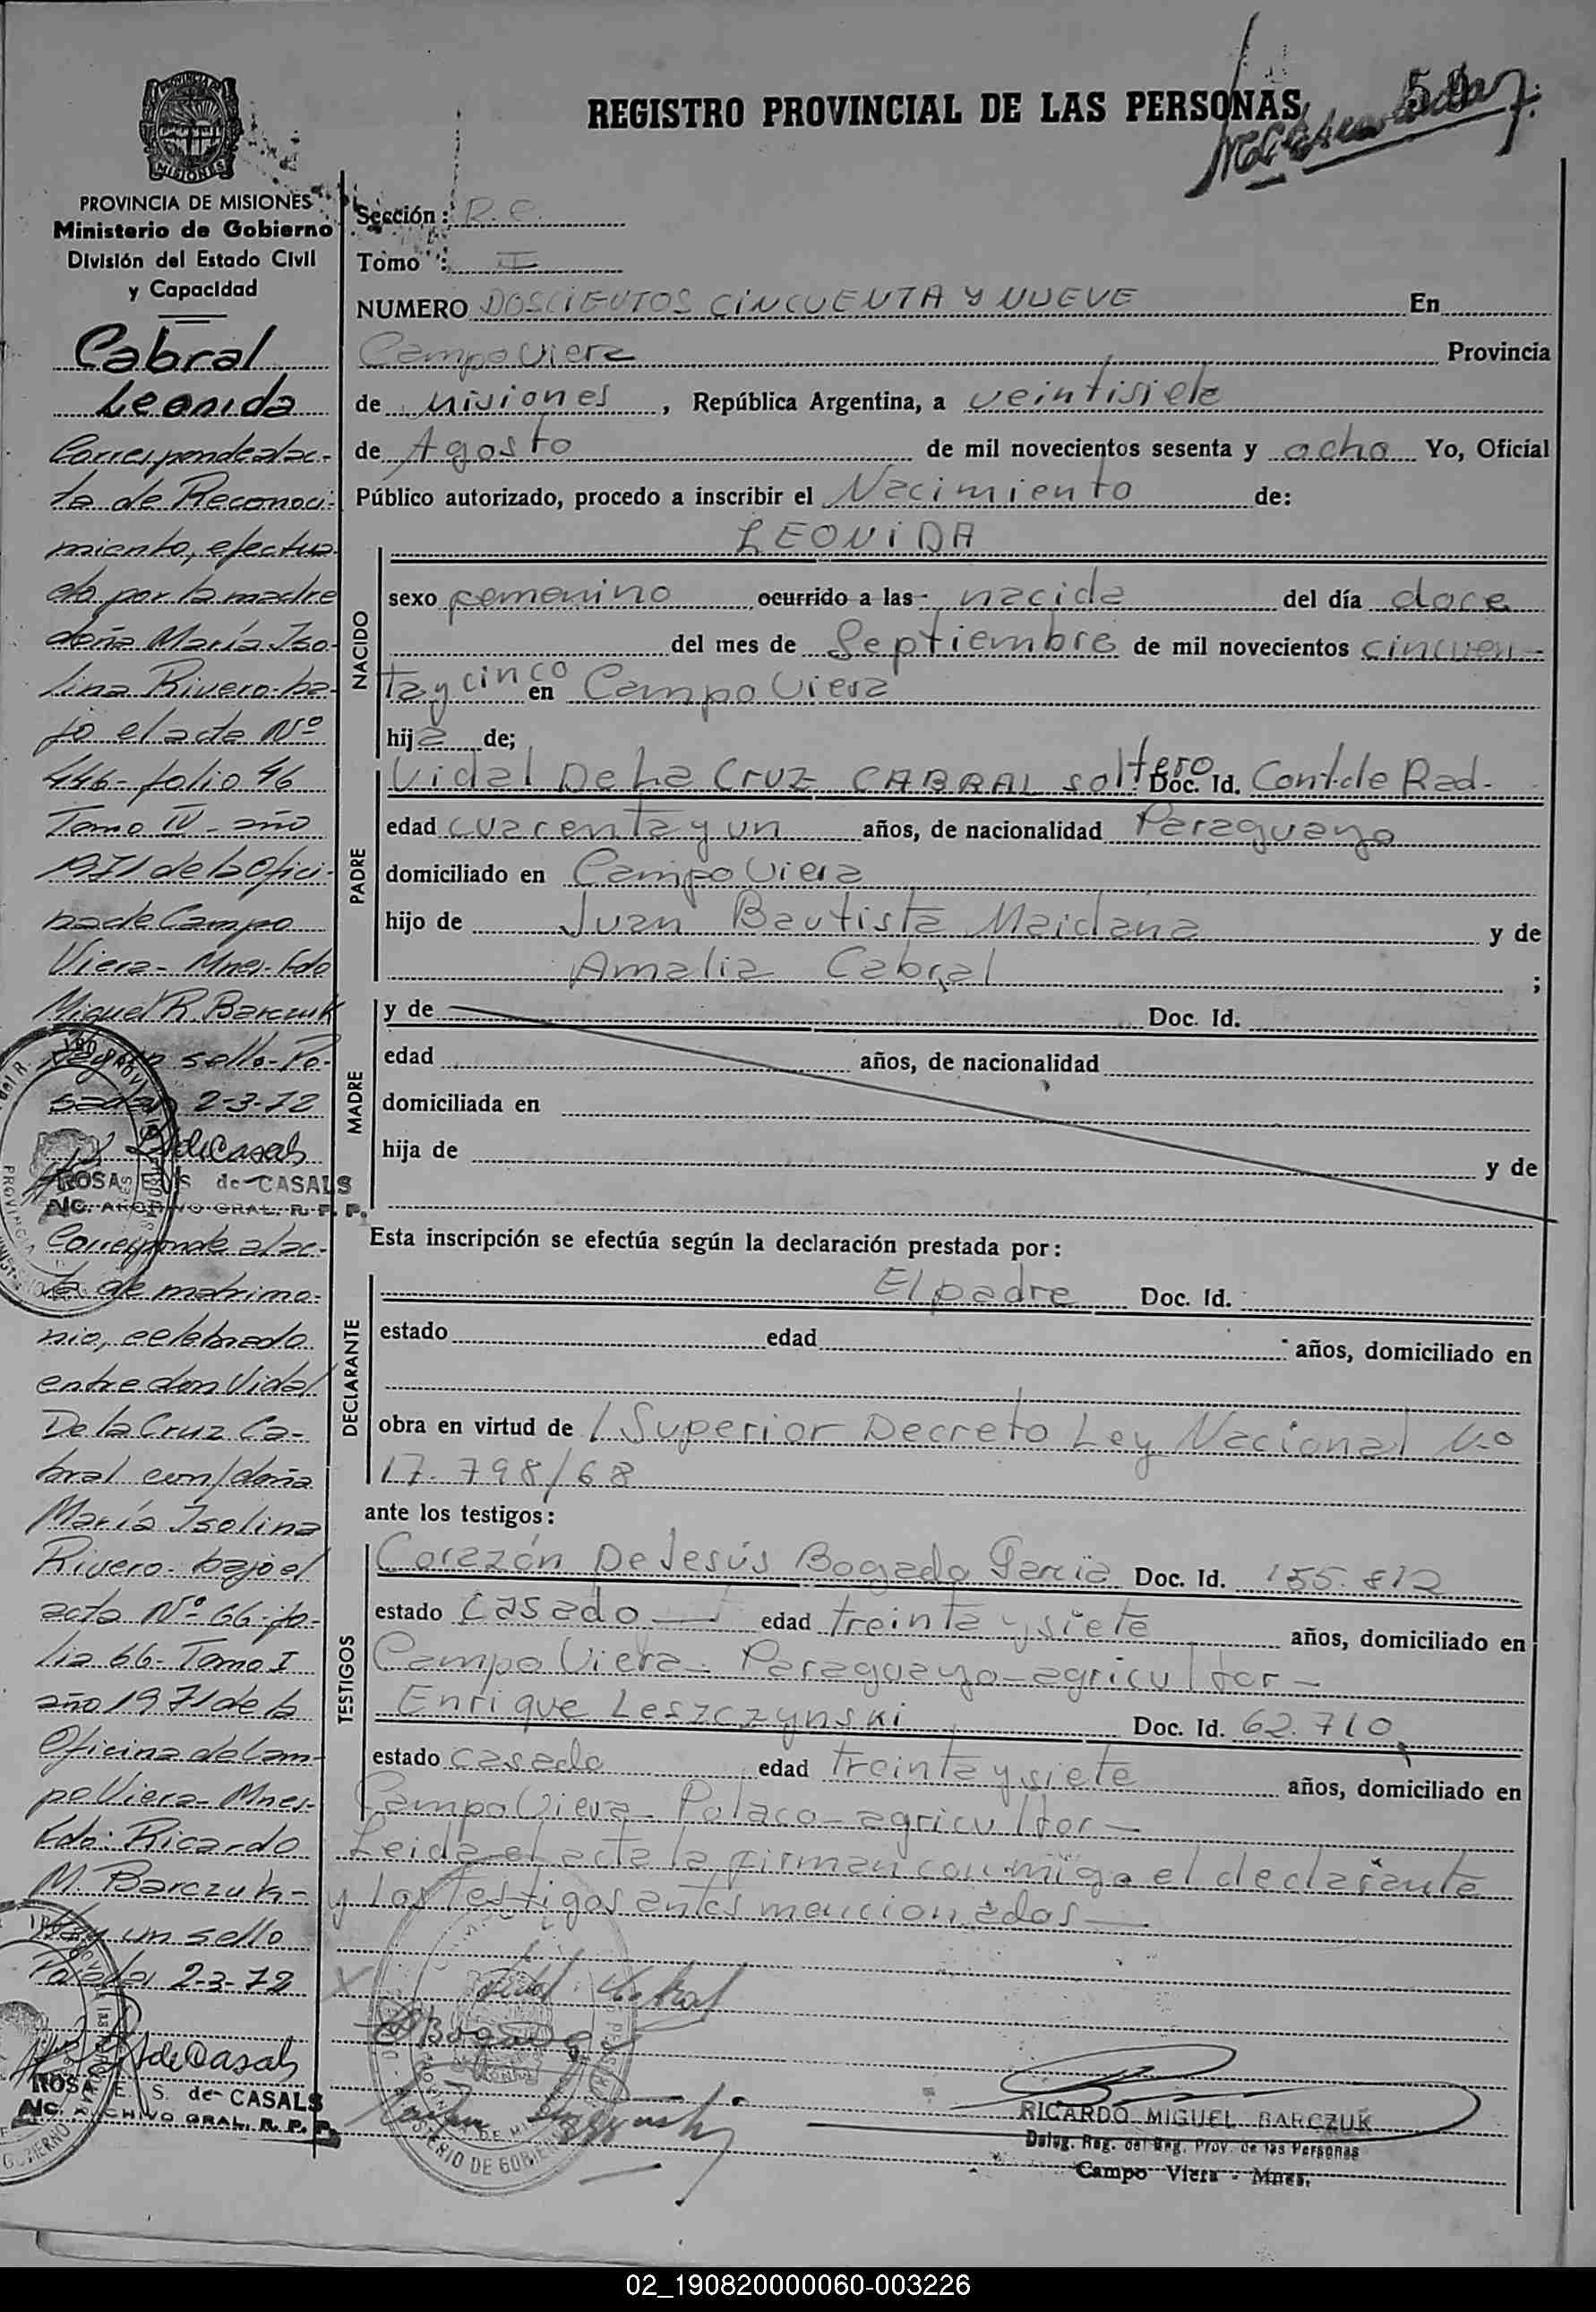 REGISTRO PROVINCIAL DE LAS PERSONAS
MISIONES
PROVINCIA DE MISIONES
Ministerio de Gobierno
División del Estado Civil
y Capacidad
Cabral
Leonida
Corresponde al ac-
ta de Reconoci-
miento, efectua-
do por la madre
doña María Iso-
lina Rivero-ba-
jo el acta Nº
446- folio 46
Tomo IV - año
1971 de la Ofici-
na de Campo
Viera- Mnes. Fdo
Miguel R. Barczuk
sello- Po-
sadas 2-3-72
ROSA S. de CASALS
ARCHIVO GRAL. R. P. P.
Corresponde al ac-
ta de matrimo-
nio, celebrado
entre don Vidal
De la Cruz Ca-
bral con/doña
María Isolina
Rivero- bajo el
acta Nº 66- fo-
lio 66- Tomo I
año 1971 de la
Oficina de Cam-
po Viera- Mnes-
Fdo: Ricardo
M. Barczuk-
Hay un sello
2-3-72
ROSA E. S. de CASALS
ARCHIVO GRAL. R. P. P.
Sección: R. C.
Tomo : I
NUMERO DOSCIENTOS CINCUENTA Y NUEVE En
Campo Viera Provincia
de Misiones, República Argentina, a veintisiete
de Agosto de mil novecientos sesenta y ocho Yo, Oficial
Público autorizado, procedo a inscribir el Nacimiento de:
LEONIDA
NACIDO
sexo femenino ocurrido a las nacida del día doce
del mes de Septiembre de mil novecientos cincuen-
ta y cinco en Campo Viera
hija de;
PADRE
Vidal De La Cruz CABRAL soltero Doc. Id. Cont. de Rad-
edad cuarenta y un años, de nacionalidad Paraguayo
domiciliado en Campo Viera
hijo de Juan Bautista Maidana y de
Amalia Cabral ;
MADRE
y de Doc. Id.
edad años, de nacionalidad
domiciliada en
hija de y de
Esta inscripción se efectúa según la declaración prestada por:
DECLARANTE
El padre Doc. Id.
estado edad años, domiciliado en
obra en virtud de / Superior Decreto Ley Nacional No
17.798/68
ante los testigos:
TESTIGOS
Corazón De Jesús Bogado Garcia Doc. Id. 155.812
estado Casado edad treinta y siete años, domiciliado en
Campo Viera- Paraguayo-agricultor-
Enrique Leszczynski Doc. Id. 62.710
estado casado edad treinta y siete años, domiciliado en
Campo Viera- Polaco-agricultor-
Leida el acta la firman conmigo el declarante
y los testigos antes mencionados
RICARDO MIGUEL BARCZUK
Deleg. Reg. del Reg. Prov. de las Personas
Campo Viera - Mnes.
02_190820000060-003226